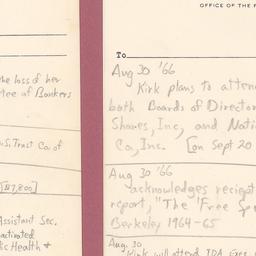 the loss of her
tee of Bankers
U.S. Trust Co. of
[$7,800]
Assistant Sec.
activated
lic Health +
OFFICE OF THE P
To
Aug 30 '66
Kirk plans to atten
both Boards of Director
Shares, Inc, and Nati
Co, Inc. [on Sept 20
Aug 30 '66
acknowledges reciept
report, "The Free Spe
Berkeley 1964-65
Aug. 30
Kirk will attend IDA Exec.